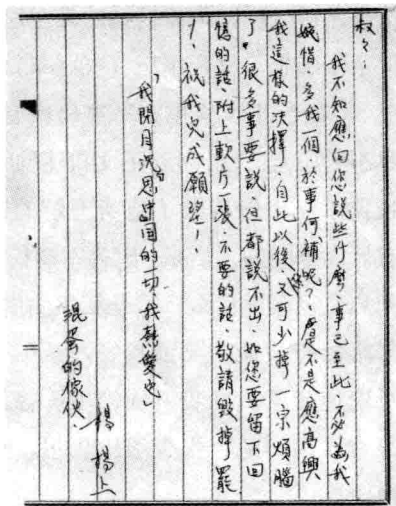 叔々：
我不知應向您說些什麼、事已至此、不必為我
惋惜、多我一個、於事何補呢？、您是不是應高興
我這樣的決擇、自此以後又可少掉一宗煩腦
了。很多事要說、但都說不出、如您要留下回
憶的話、附上軟片一張、不要的話、敬請毀掉罷
！、祝我完成願望！、
「我閉目沉思中国的一切、我熱愛她」
混蛋的傢伙、
楊揚上